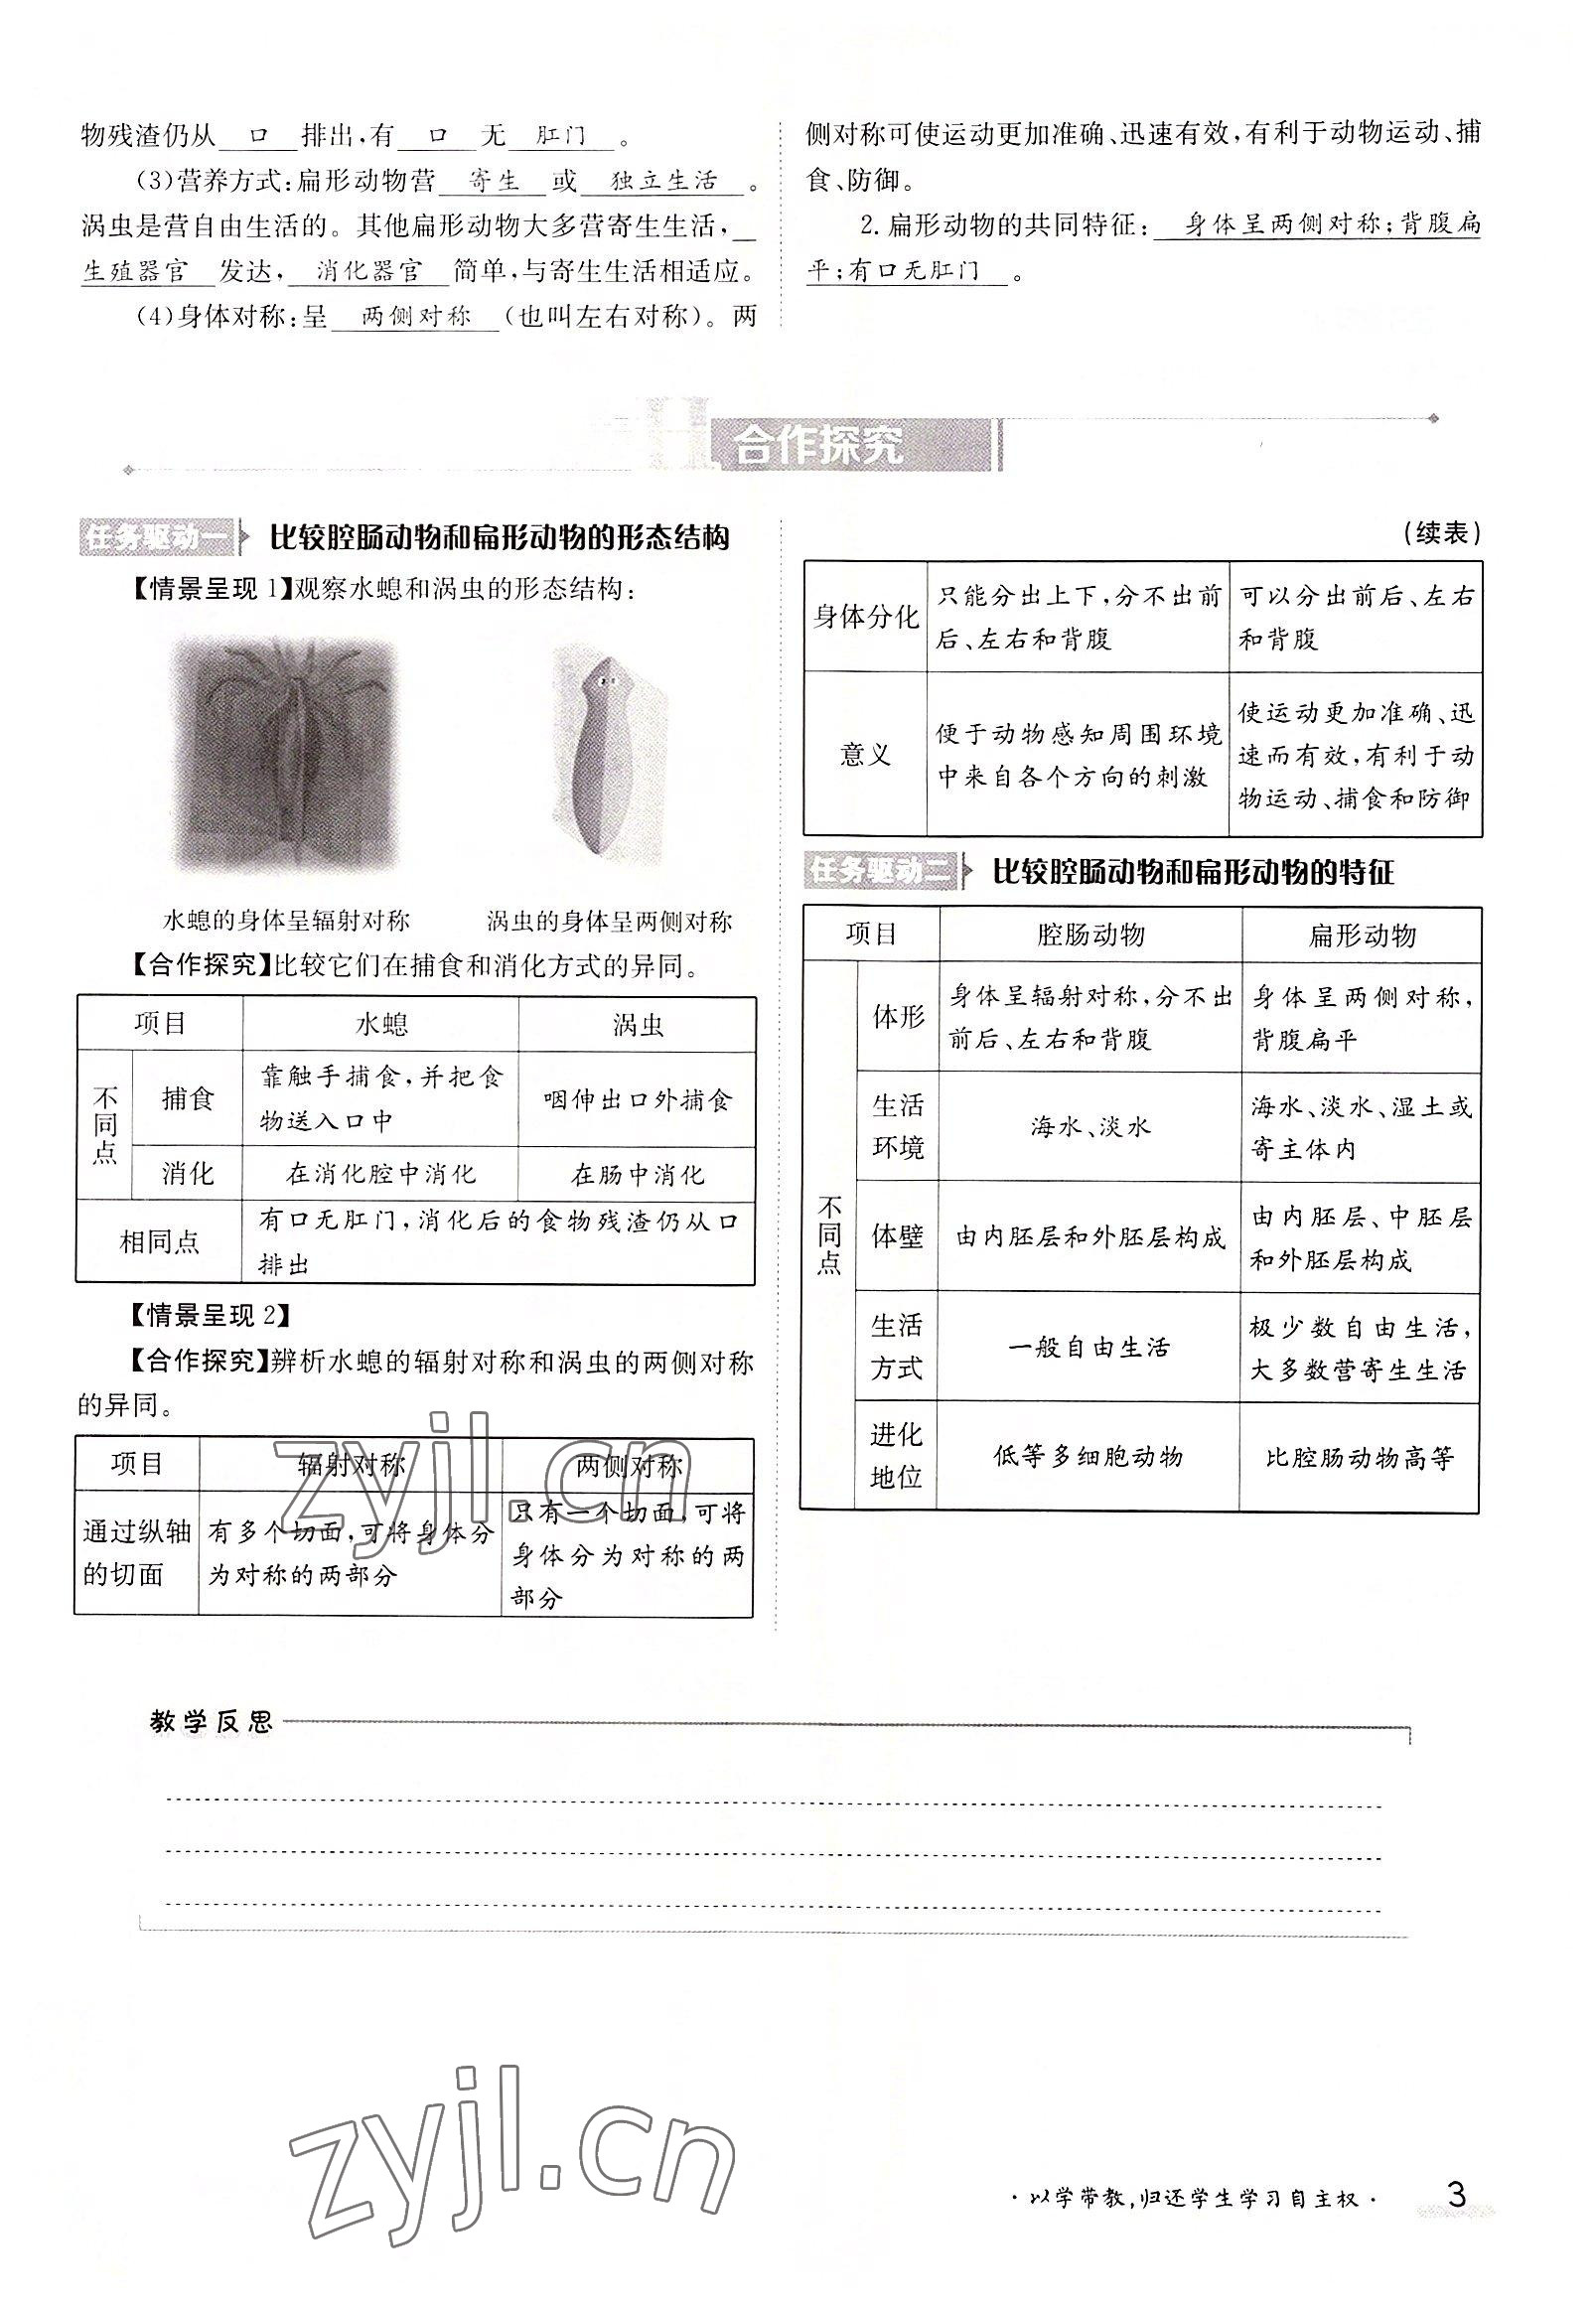 物残渣仍从 口 排出,有 口 无 肛门 。
(3)营养方式:扁形动物营 寄生 或 独立生活 。
涡虫是营自由生活的。其他扁形动物大多营寄生生活,
生殖器官 发达, 消化器官 简单,与寄生生活相适应。
(4)身体对称:呈 两侧对称 (也叫左右对称)。两
侧对称可使运动更加准确、迅速有效,有利于动物运动、捕
食、防御。
2.扁形动物的共同特征: 身体呈两侧对称;背腹扁
平;有口无肛门 。
合作探究
任务驱动一 比较腔肠动物和扁形动物的形态结构
【情景呈现1】观察水螅和涡虫的形态结构:
水螅的身体呈辐射对称 涡虫的身体呈两侧对称
【合作探究】比较它们在捕食和消化方式的异同。
项目 水螅 涡虫
不同点
捕食
靠触手捕食,并把食
物送入口中
咽伸出口外捕食
消化 在消化腔中消化 在肠中消化
相同点
有口无肛门,消化后的食物残渣仍从口
排出
【情景呈现2】
【合作探究】辨析水螅的辐射对称和涡虫的两侧对称
的异同。
项目 辐射对称 两侧对称
通过纵轴
的切面
有多个切面,可将身体分
为对称的两部分
只有一个切面,可将
身体分为对称的两
部分
(续表)
身体分化
只能分出上下,分不出前
后、左右和背腹
可以分出前后、左右
和背腹
意义
便于动物感知周围环境
中来自各个方向的刺激
使运动更加准确、迅
速而有效,有利于动
物运动、捕食和防御
任务驱动二 比较腔肠动物和扁形动物的特征
项目 腔肠动物 扁形动物
不同点
体形
身体呈辐射对称,分不出
前后、左右和背腹
身体呈两侧对称,
背腹扁平
生活
环境
海水、淡水
海水、淡水、湿土或
寄主体内
体壁
由内胚层和外胚层构成
由内胚层、中胚层
和外胚层构成
生活
方式
一般自由生活
极少数自由生活,
大多数营寄生生活
进化
地位
低等多细胞动物
比腔肠动物高等
zyjl.cn
教学反思
zyjl.cn
·以学带教,归还学生学习自主权· 3